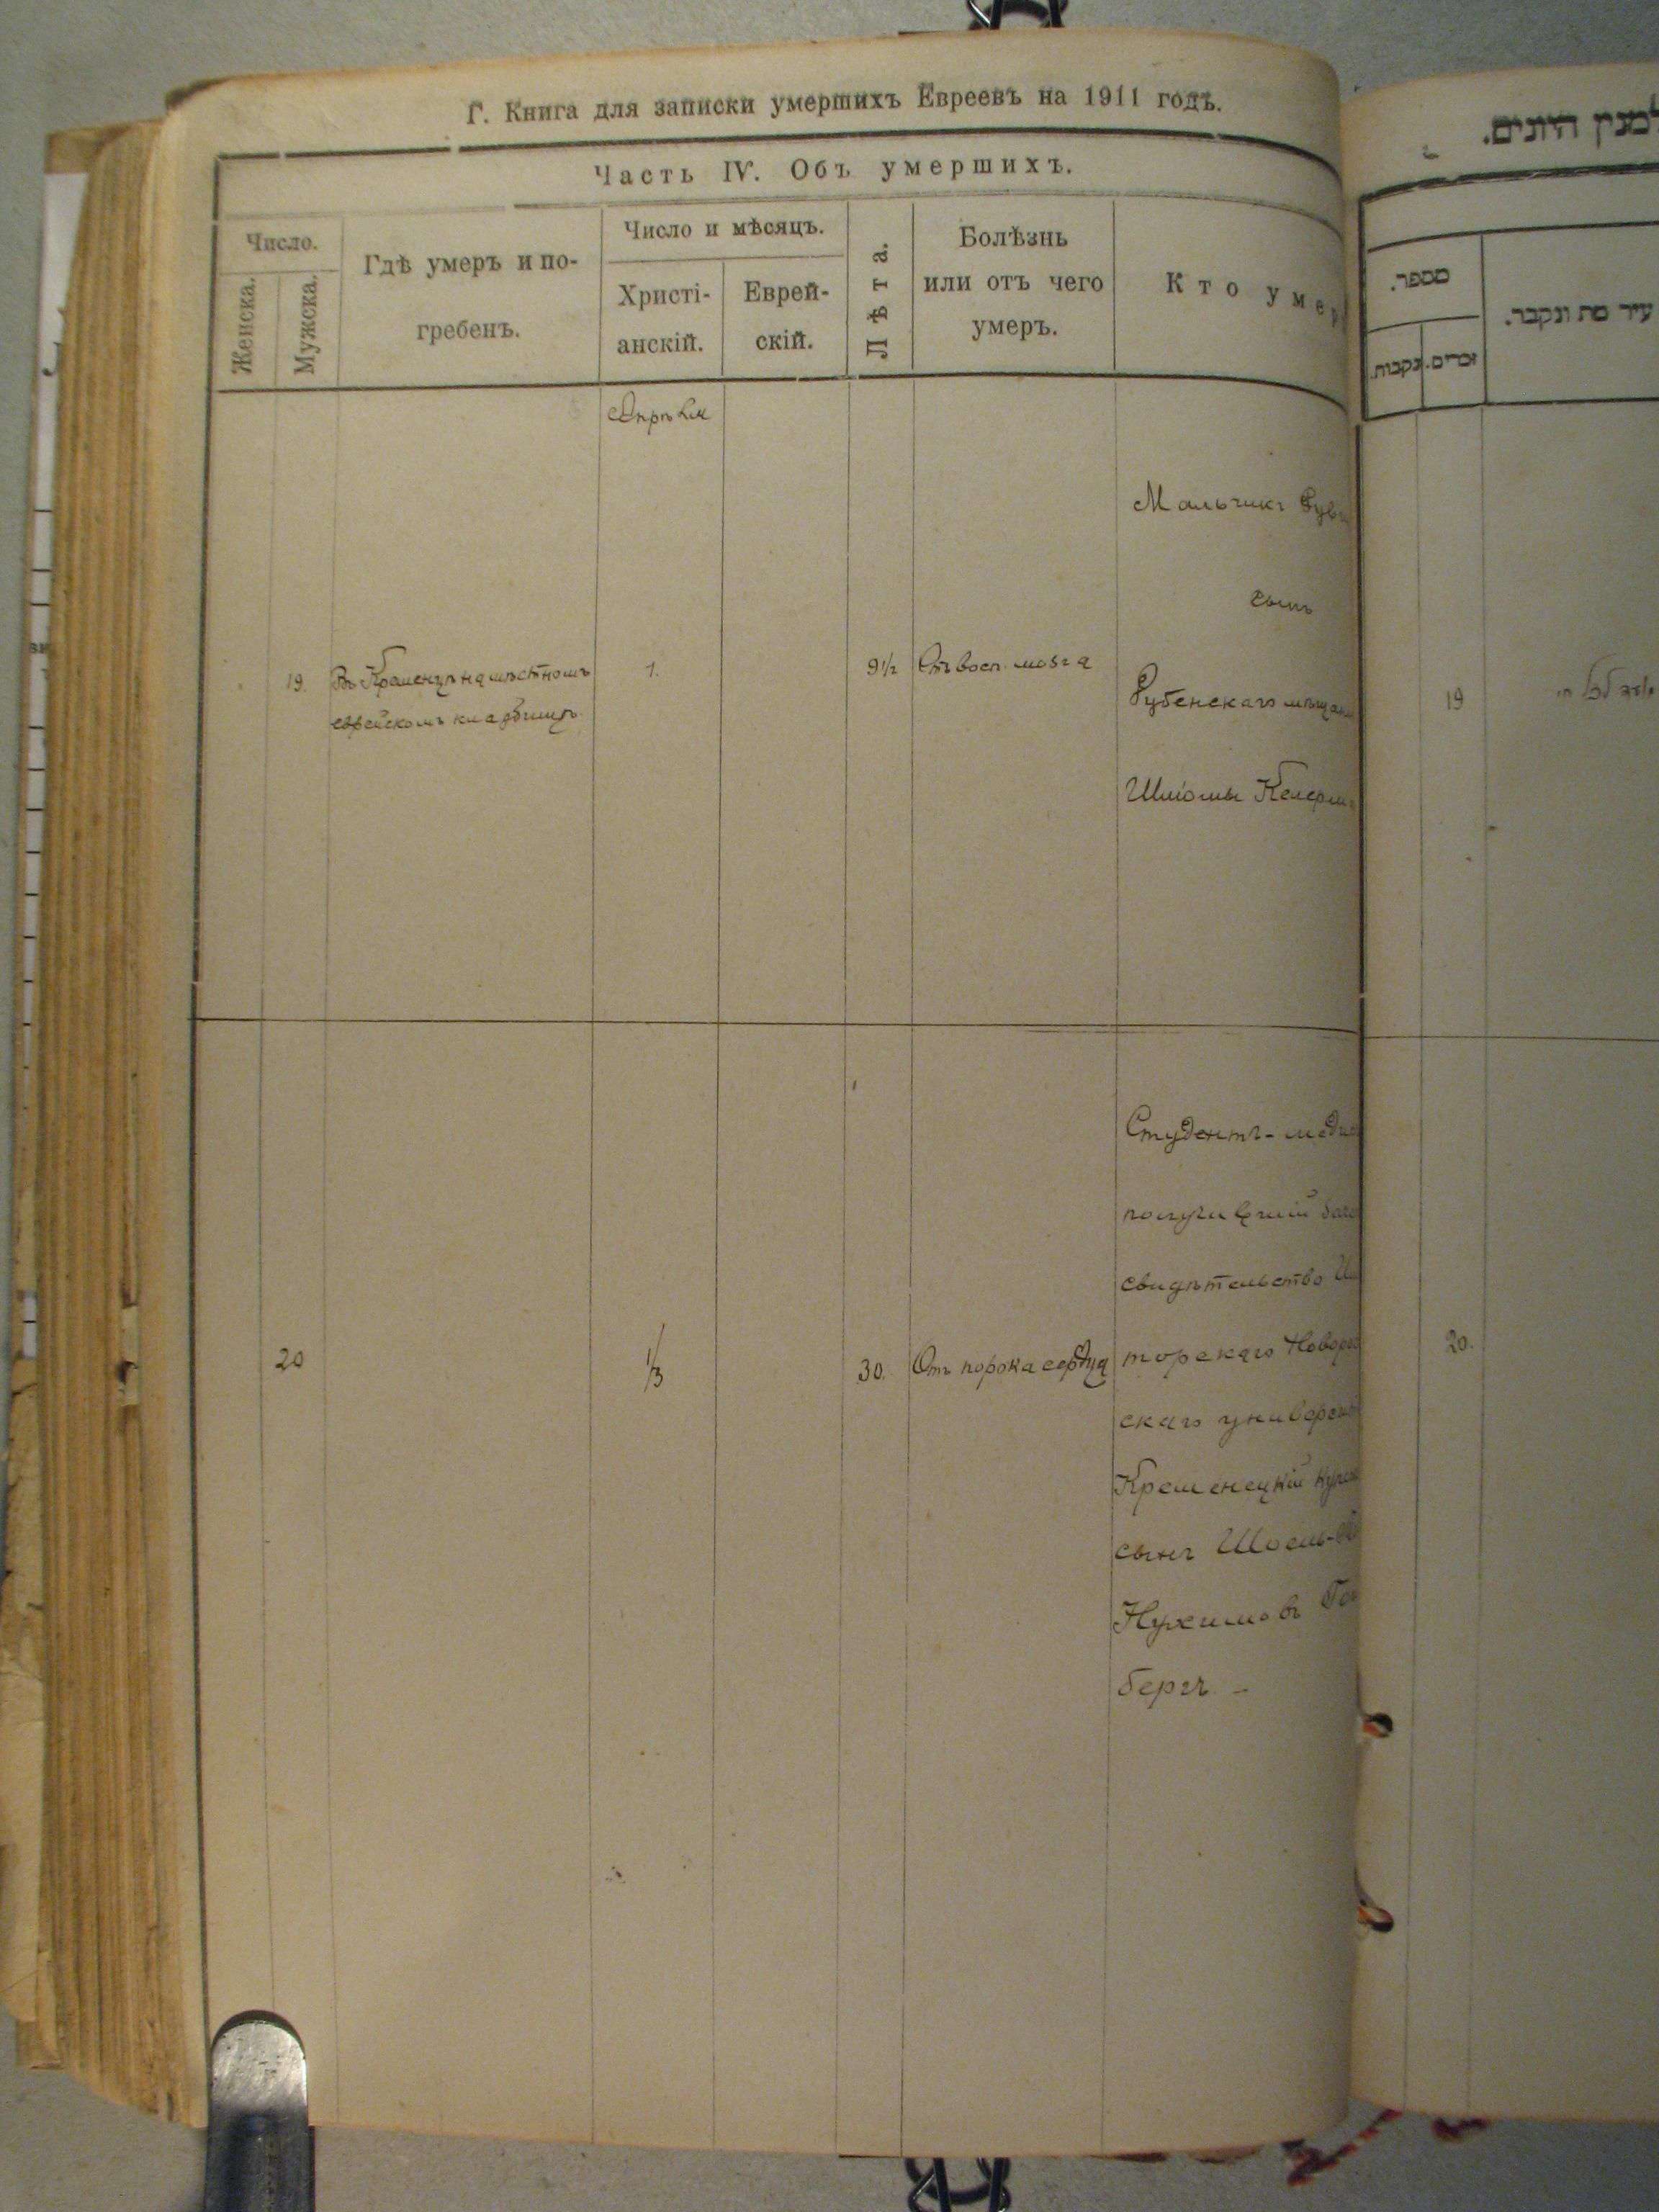 Г. Книга для записки умершихъ Евреевъ на 1911 годъ.
Часть IV. Объ умершихъ.
Число.
Женска.
Мужска.
Гдѣ умеръ и по-
гребенъ.
Число и мѣсяцъ.
Христі-
анскій.
Еврей-
скій.
Лѣта.
Болѣзнь
или отъ чего
умеръ.
Кто умер
Апрѣль
19.
Въ Кременцѣ на мѣстномъ
еврейскомъ кладбищѣ
1.
9½
Отъ восп. мозга
Мальчикъ
сынъ
мѣщан
Шліомы Келерм
20
1/3
30.
Отъ порока сердца
Студентъ-меди
получившій
свидѣтельство
торскаго Новорос
скаго университ
Кременецкій купе
сынъ Шоель-
Нухимовъ Го
бергъ. –
למנין היונים.
מספר.
זכרים.
נקבות.
עיר מת ונקבר.
19
20.